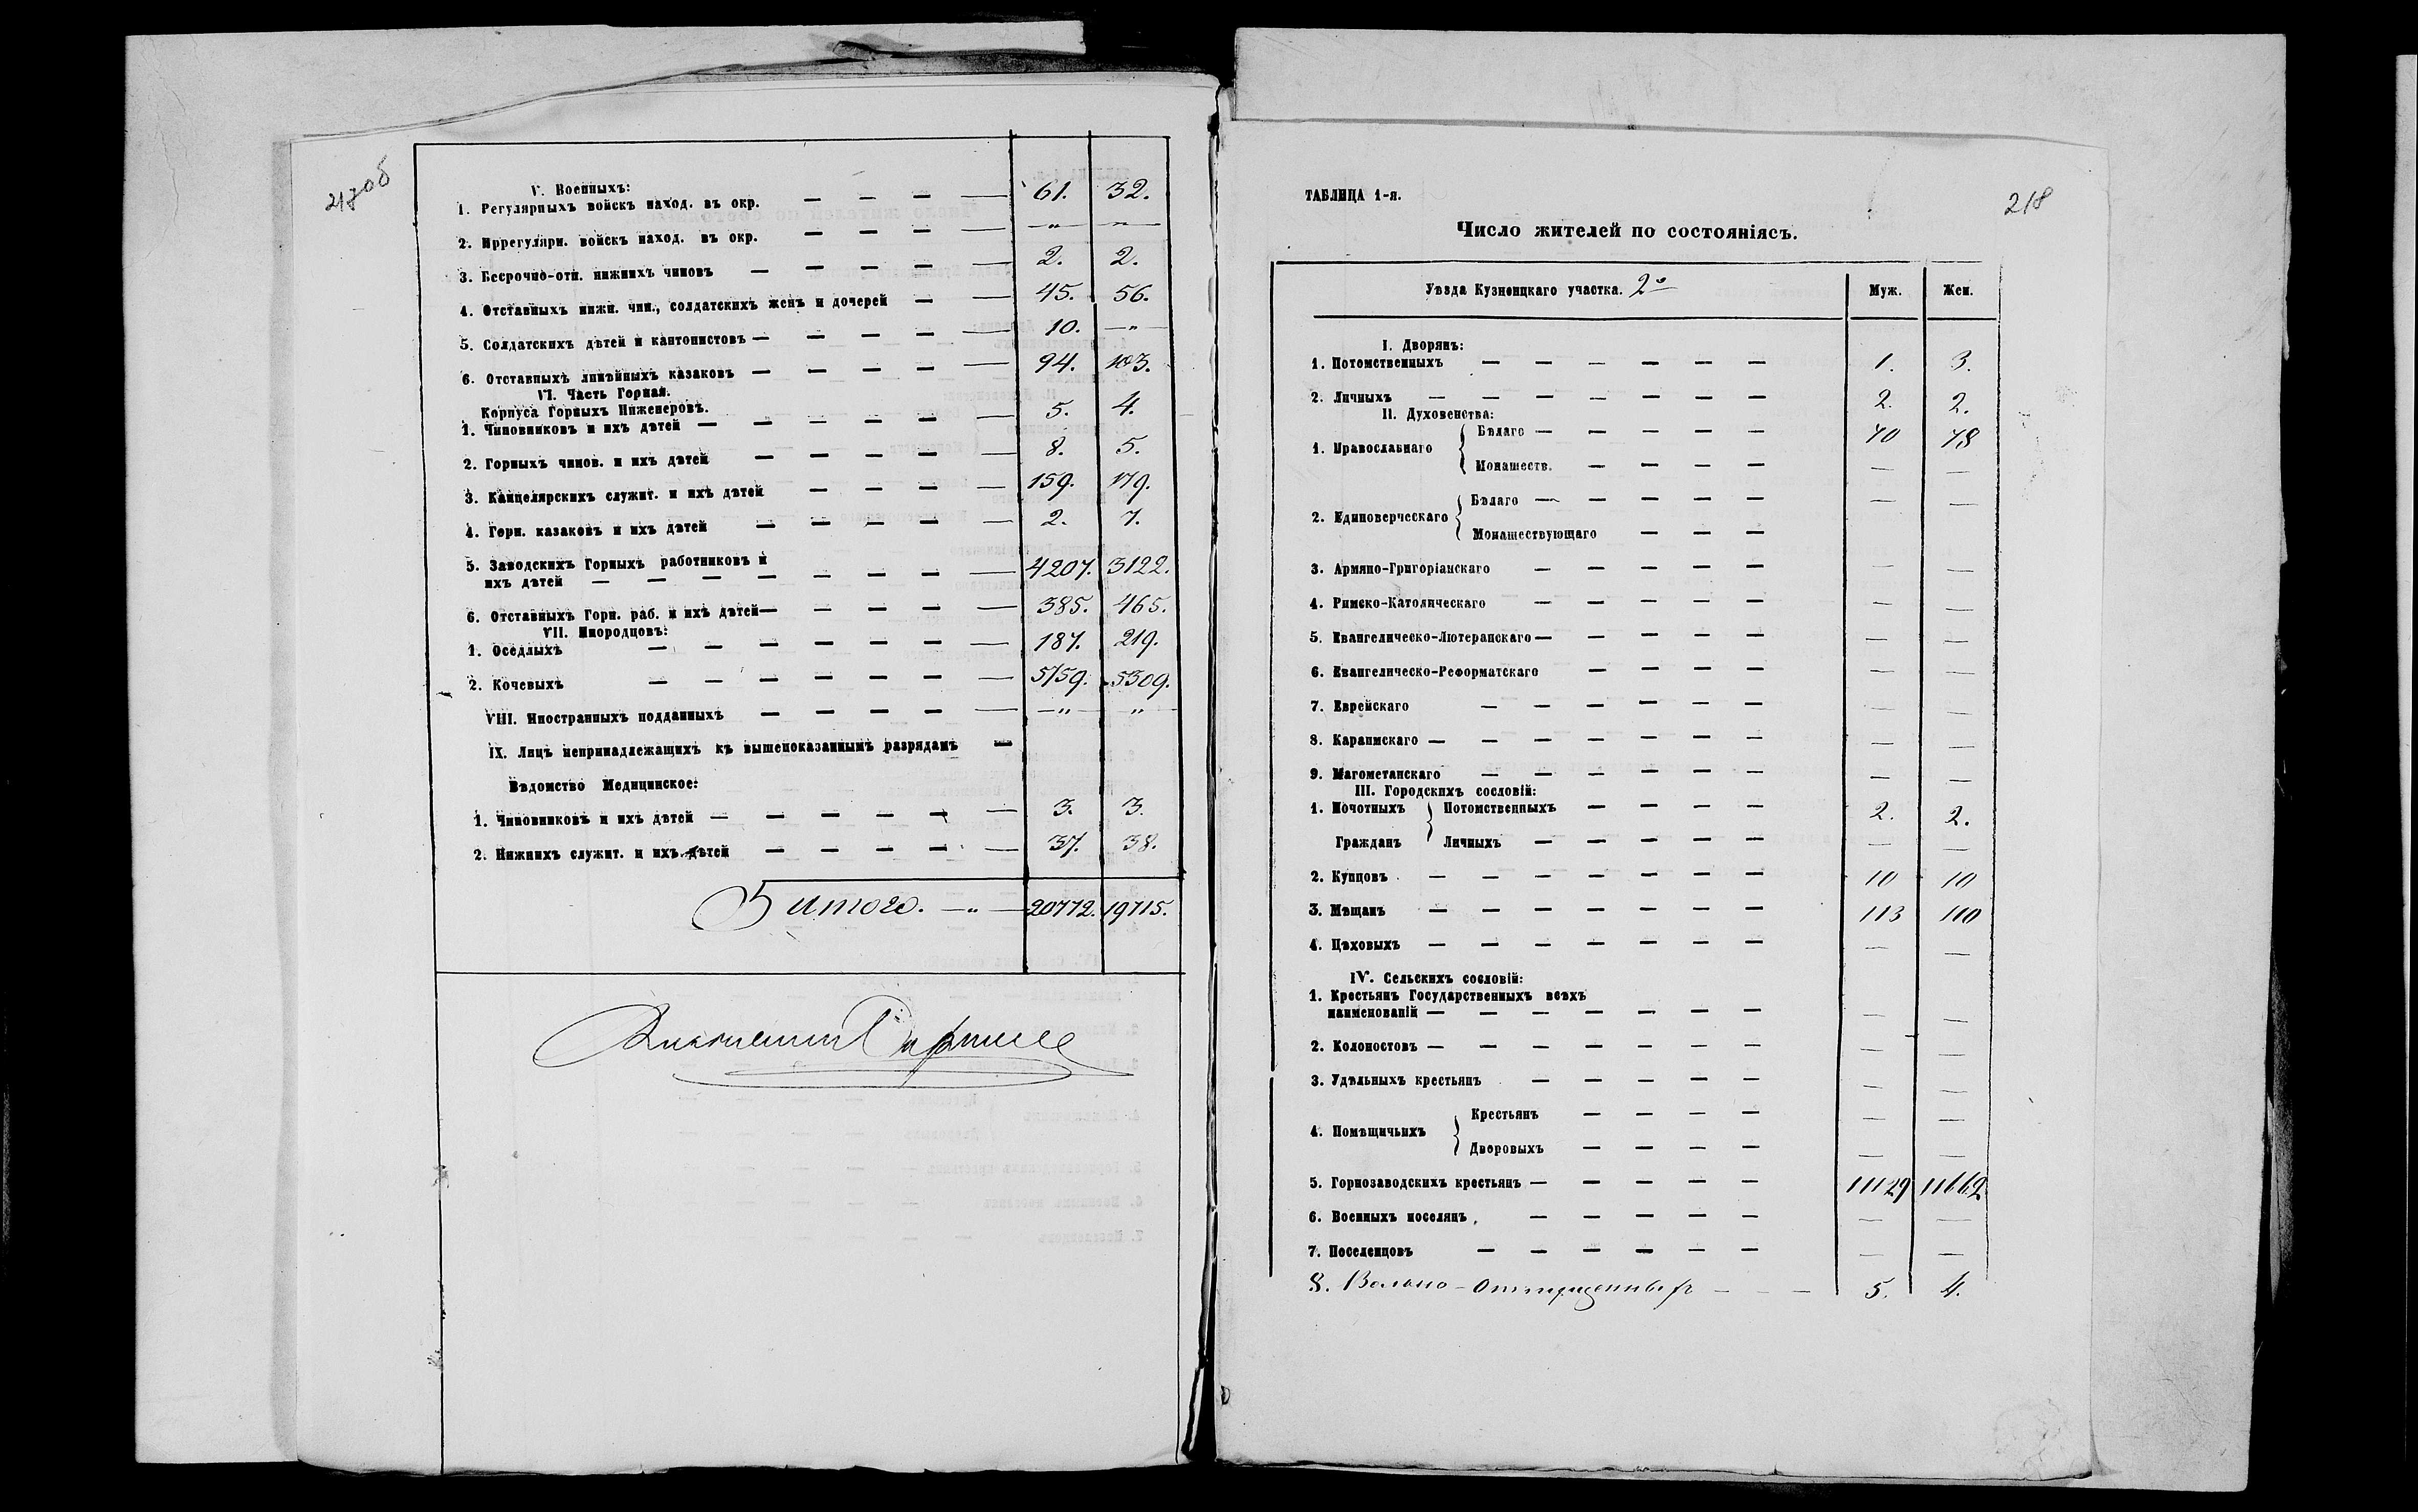 217 об
V. Военныхъ:
1. Регулярныхъ войскъ наход. въ окр. — — — — 61. 32.
2. Иррегулярн. войскъ наход. въ окр. — — — — „ „
3. Бесрочно-отп. нижнихъ чиновъ — — — — — 2. 2.
4. Отставныхъ нижн. чин., солдатскихъ женъ и дочерей — — 45. 56.
5. Солдатскихъ дѣтей и кантонистовъ — — — — — 10. — „ —
6. Отставныхъ линѣйныхъ казаковъ — — — — — 94. 103.
VI. Часть Горная.
Корпуса Горныхъ Инженеровъ.
1. Чиновниковъ и ихъ дѣтей — — — — — — 5. 4.
2. Горныхъ чинов. и ихъ дѣтей — — — — — 8. 5.
3. Канцелярскихъ служит. и ихъ дѣтей — — — — 159. 179.
4. Горн. казаковъ и ихъ дѣтей — — — — — 2. 7.
5. Заводскихъ Горныхъ работниковъ и
ихъ дѣтей — — — — — — — — 4207. 3122.
6. Отставныхъ Горн. раб. и ихъ дѣтей — — — — — 385. 465.
VII. Инородцовъ:
1. Оседлыхъ — — — — — — — 187. 219.
2. Кочевыхъ — — — — — — — 5159. 5309.
VIII. Иностранныхъ подданныхъ — — — — — — „ — „ —
IX. Лицъ непринадлежащихъ къ вышепоказаннымъ разрядамъ —
Вѣдомство Медицинское:
1. Чиновниковъ и ихъ дѣтей — — — — — — 3. 3.
2. Нижнихъ служит. и ихъ дѣтей — — — — — 37. 38.
итого. — „ — 20772. 19715.
218
ТАБЛИЦА 1-я.
Число жителей по состояніясъ.
Уѣзда Кузнецкаго участка. 2го Муж. Жен.
I. Дворянъ:
1. Потомственныхъ — — — — — — 1. 3.
2. Личныхъ — — — — — — — 2. 2.
II. Духовенства:
1. Православнаго { Бѣлаго — — — — — 70 78
Монашеств. — — — — — —
2. Единоверческаго { Бѣлаго — — — — — — —
Монашествующаго — — —
3. Армяно-Григоріанскаго — — — — — — —
4. Римско-Католическаго — — — — — — —
5. Евангелическо-Лютеранскаго — — — — — — —
6. Евангелическо-Реформатскаго — — — — — —
7. Еврейскаго — — — — — — — —
8. Караимскаго — — — — — — — — —
9. Магометанскаго — — — — — — — —
III. Городскихъ сословій:
1. Почотныхъ } Потомственныхъ — — — — 2. 2.
Гражданъ Личныхъ — — — — — — —
2. Купцовъ — — — — — — — 10 10
3. Мѣщанъ — — — — — — — 113 110
4. Цѣховыхъ — — — — — — — — —
IV. Сельскихъ сословій:
1. Крестьянъ Государственныхъ всѣхъ
наименованій — — — — — — — — —
2. Колоностовъ — — — — — — — — —
3. Удѣльныхъ крестьянъ — — — — — — —
4. Помѣщичьихъ { Крестьянъ — — — — — —
Дворовыхъ — — — — — —
5. Горнозаводскихъ крестьянъ — — — — — 11129 11662
6. Военныхъ поселянъ — — — — — — —
7. Поселенцовъ — — — — — — — —
8. Вольно-отпущенныхъ — — — 5. 4.